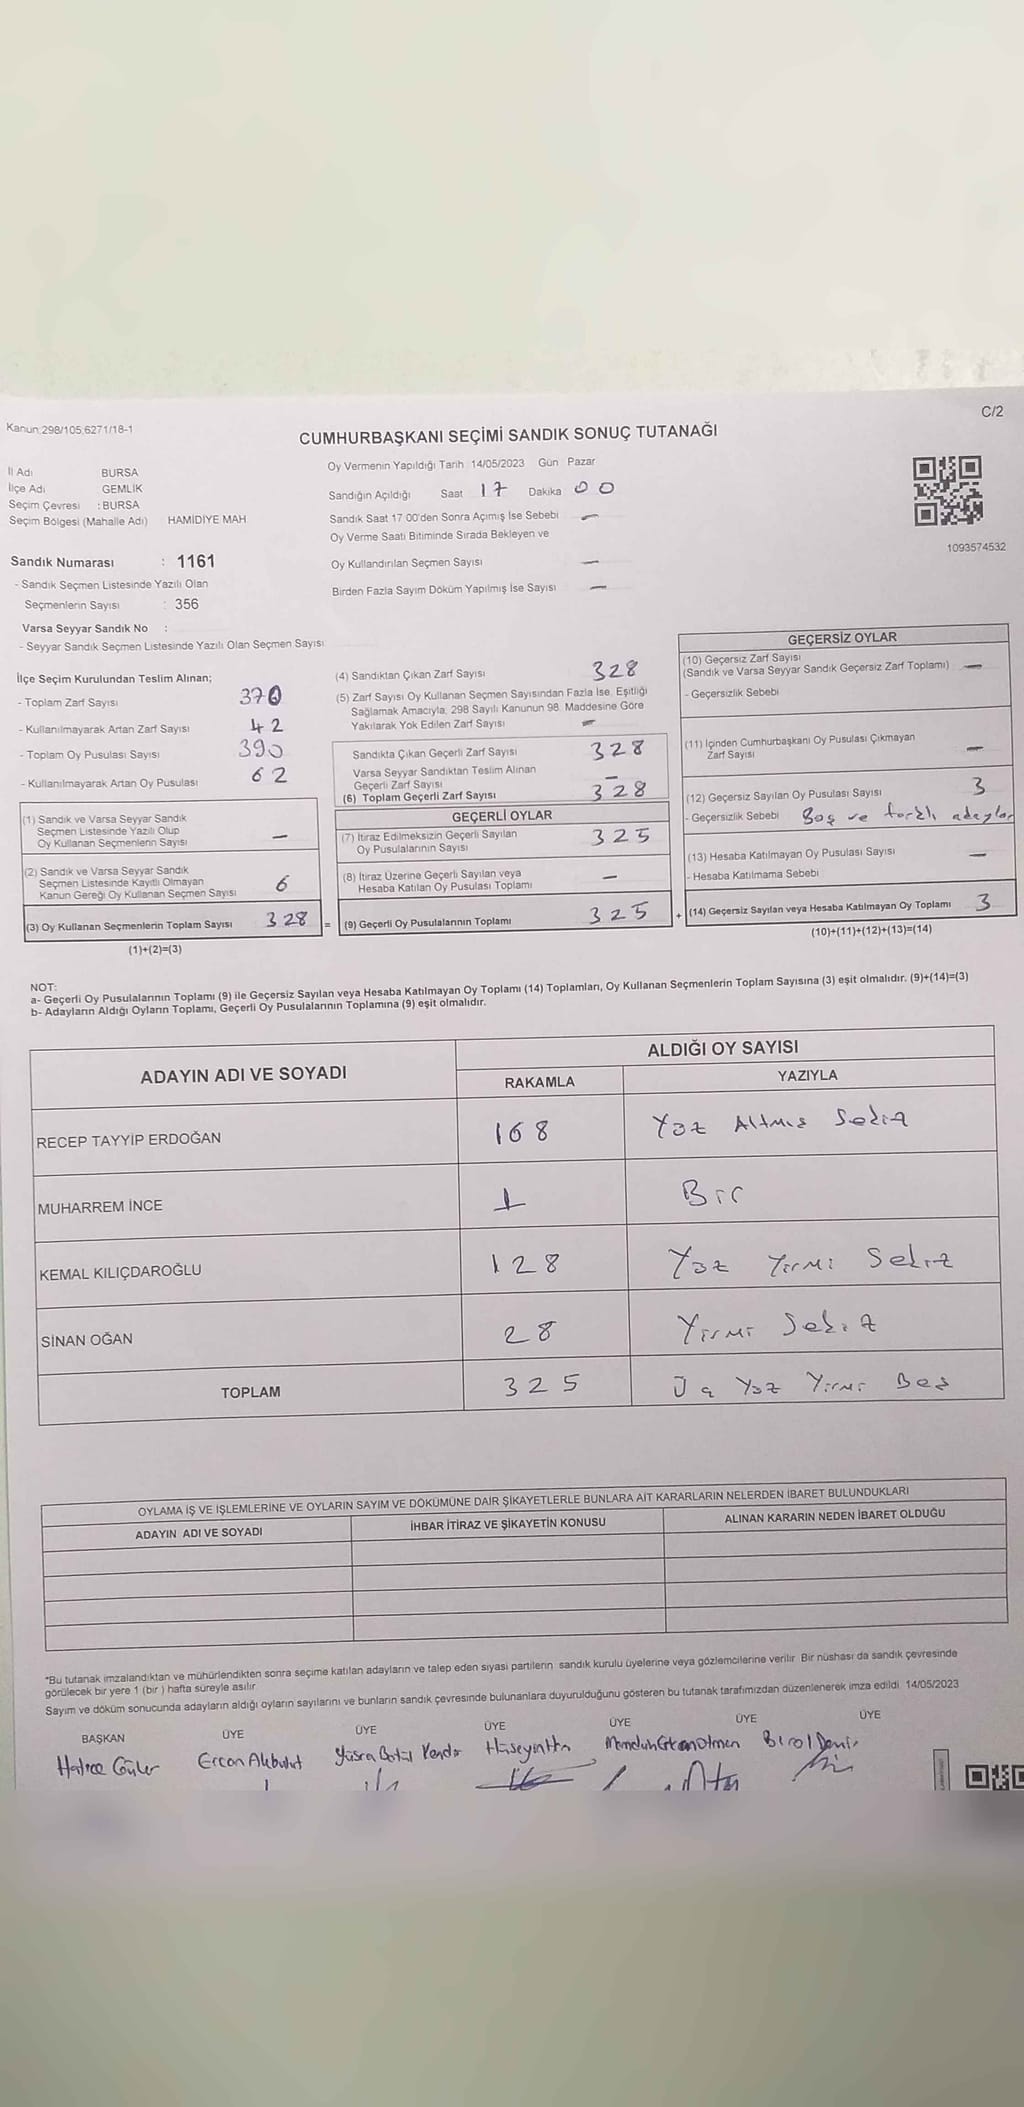 C/2
Kanun:298/105,6271/18-1
CUMHURBAŞKANI SEÇİMİ SANDIK SONUÇ TUTANAĞI
İl Adı BURSA
İlçe Adı GEMLİK
Seçim Çevresi : BURSA
Seçim Bölgesi (Mahalle Adı) HAMİDİYE MAH
Oy Vermenin Yapıldığı Tarih 14/05/2023 Gün Pazar
Sandığın Açıldığı Saat 17 Dakika 00
Sandık Saat 17 00'den Sonra Açımış İse Sebebi —
Oy Verme Saati Bitiminde Sırada Bekleyen ve
Oy Kullandırılan Seçmen Sayısı —
Birden Fazla Sayım Döküm Yapılmış İse Sayısı —
1093574532
Sandık Numarası : 1161
- Sandık Seçmen Listesinde Yazılı Olan
Seçmenlerin Sayısı : 356
Varsa Seyyar Sandık No :
- Seyyar Sandık Seçmen Listesinde Yazılı Olan Seçmen Sayısı
İlçe Seçim Kurulundan Teslim Alınan;
- Toplam Zarf Sayısı 370
- Kullanılmayarak Artan Zarf Sayısı 42
- Toplam Oy Pusulası Sayısı 390
- Kullanılmayarak Artan Oy Pusulası 62
(1) Sandık ve Varsa Seyyar Sandık
Seçmen Listesinde Yazılı Olup
Oy Kullanan Seçmenlerin Sayısı —
(2) Sandık ve Varsa Seyyar Sandık
Seçmen Listesinde Kayıtlı Olmayan
Kanun Gereği Oy Kullanan Seçmen Sayısı 6
(3) Oy Kullanan Seçmenlerin Toplam Sayısı 328 =
(1)+(2)=(3)
(4) Sandıktan Çıkan Zarf Sayısı 328
(5) Zarf Sayısı Oy Kullanan Seçmen Sayısından Fazla İse, Eşitliği
Sağlamak Amacıyla; 298 Sayılı Kanunun 98. Maddesine Göre
Yakılarak Yok Edilen Zarf Sayısı —
Sandıkta Çıkan Geçerli Zarf Sayısı 328
Varsa Seyyar Sandıktan Teslim Alınan
Geçerli Zarf Sayısı —
(6) Toplam Geçerli Zarf Sayısı 328
GEÇERLİ OYLAR
(7) İtiraz Edilmeksizin Geçerli Sayılan
Oy Pusulalarının Sayısı 325
(8) İtiraz Üzerine Geçerli Sayılan veya
Hesaba Katılan Oy Pusulası Toplamı —
(9) Geçerli Oy Pusulalarının Toplamı 325 +
GEÇERSİZ OYLAR
(10) Geçersiz Zarf Sayısı
(Sandık ve Varsa Seyyar Sandık Geçersiz Zarf Toplamı) —
- Geçersizlik Sebebi
(11) İçinden Cumhurbaşkanı Oy Pusulası Çıkmayan
Zarf Sayısı —
(12) Geçersiz Sayılan Oy Pusulası Sayısı 3
- Geçersizlik Sebebi Boş ve farklı adaylar
(13) Hesaba Katılmayan Oy Pusulası Sayısı —
- Hesaba Katılmama Sebebi
(14) Geçersiz Sayılan veya Hesaba Katılmayan Oy Toplamı 3
(10)+(11)+(12)+(13)=(14)
NOT:
a- Geçerli Oy Pusulalarının Toplamı (9) ile Geçersiz Sayılan veya Hesaba Katılmayan Oy Toplamı (14) Toplamları, Oy Kullanan Seçmenlerin Toplam Sayısına (3) eşit olmalıdır. (9)+(14)=(3)
b- Adayların Aldığı Oyların Toplamı, Geçerli Oy Pusulalarının Toplamına (9) eşit olmalıdır.
ADAYIN ADI VE SOYADI ALDIĞI OY SAYISI
RAKAMLA YAZIYLA
RECEP TAYYİP ERDOĞAN 168 Yüz Altmış Sekiz
MUHARREM İNCE 1 Bir
KEMAL KILIÇDAROĞLU 128 Yüz Yirmi Sekiz
SİNAN OĞAN 28 Yirmi Sekiz
TOPLAM 325 Üç Yüz Yirmi Beş
OYLAMA İŞ VE İŞLEMLERİNE VE OYLARIN SAYIM VE DÖKÜMÜNE DAİR ŞİKAYETLERLE BUNLARA AİT KARARLARIN NELERDEN İBARET BULUNDUKLARI
ADAYIN ADI VE SOYADI İHBAR İTİRAZ VE ŞİKAYETİN KONUSU ALINAN KARARIN NEDEN İBARET OLDUĞU
*Bu tutanak imzalandıktan ve mühürlendikten sonra seçime katılan adayların ve talep eden siyasi partilerin sandık kurulu üyelerine veya gözlemcilerine verilir Bir nüshası da sandık çevresinde
görülecek bir yere 1 (bir ) hafta süreyle asılır
Sayım ve döküm sonucunda adayların aldığı oyların sayılarını ve bunların sandık çevresinde bulunanlara duyurulduğunu gösteren bu tutanak tarafımızdan düzenlenerek imza edildi 14/05/2023
BAŞKAN ÜYE ÜYE ÜYE ÜYE ÜYE ÜYE
Hatice Güler Ercan Akbulut Yüsra Betül Hüseyin Birol Demir